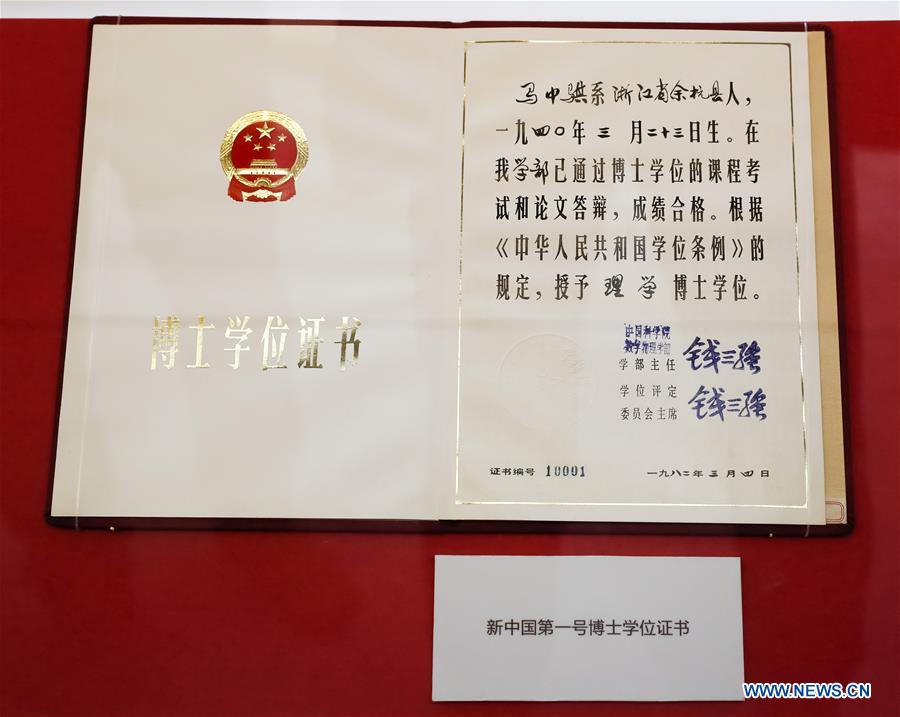 博士学位证书
马中骐系浙江省余杭县人，
一九四〇年三月二十三日生。在
我学部已通过博士学位的课程考
试和论文答辩，成绩合格。根据
《中华人民共和国学位条例》的
规定，授予理学博士学位。
中国科学院
数学物理学部
学部主任 钱三强
学位评定
委员会主席 钱三强
证书编号 10001 一九八二年三月四日
新中国第一号博士学位证书
WWW.NEWS.CN